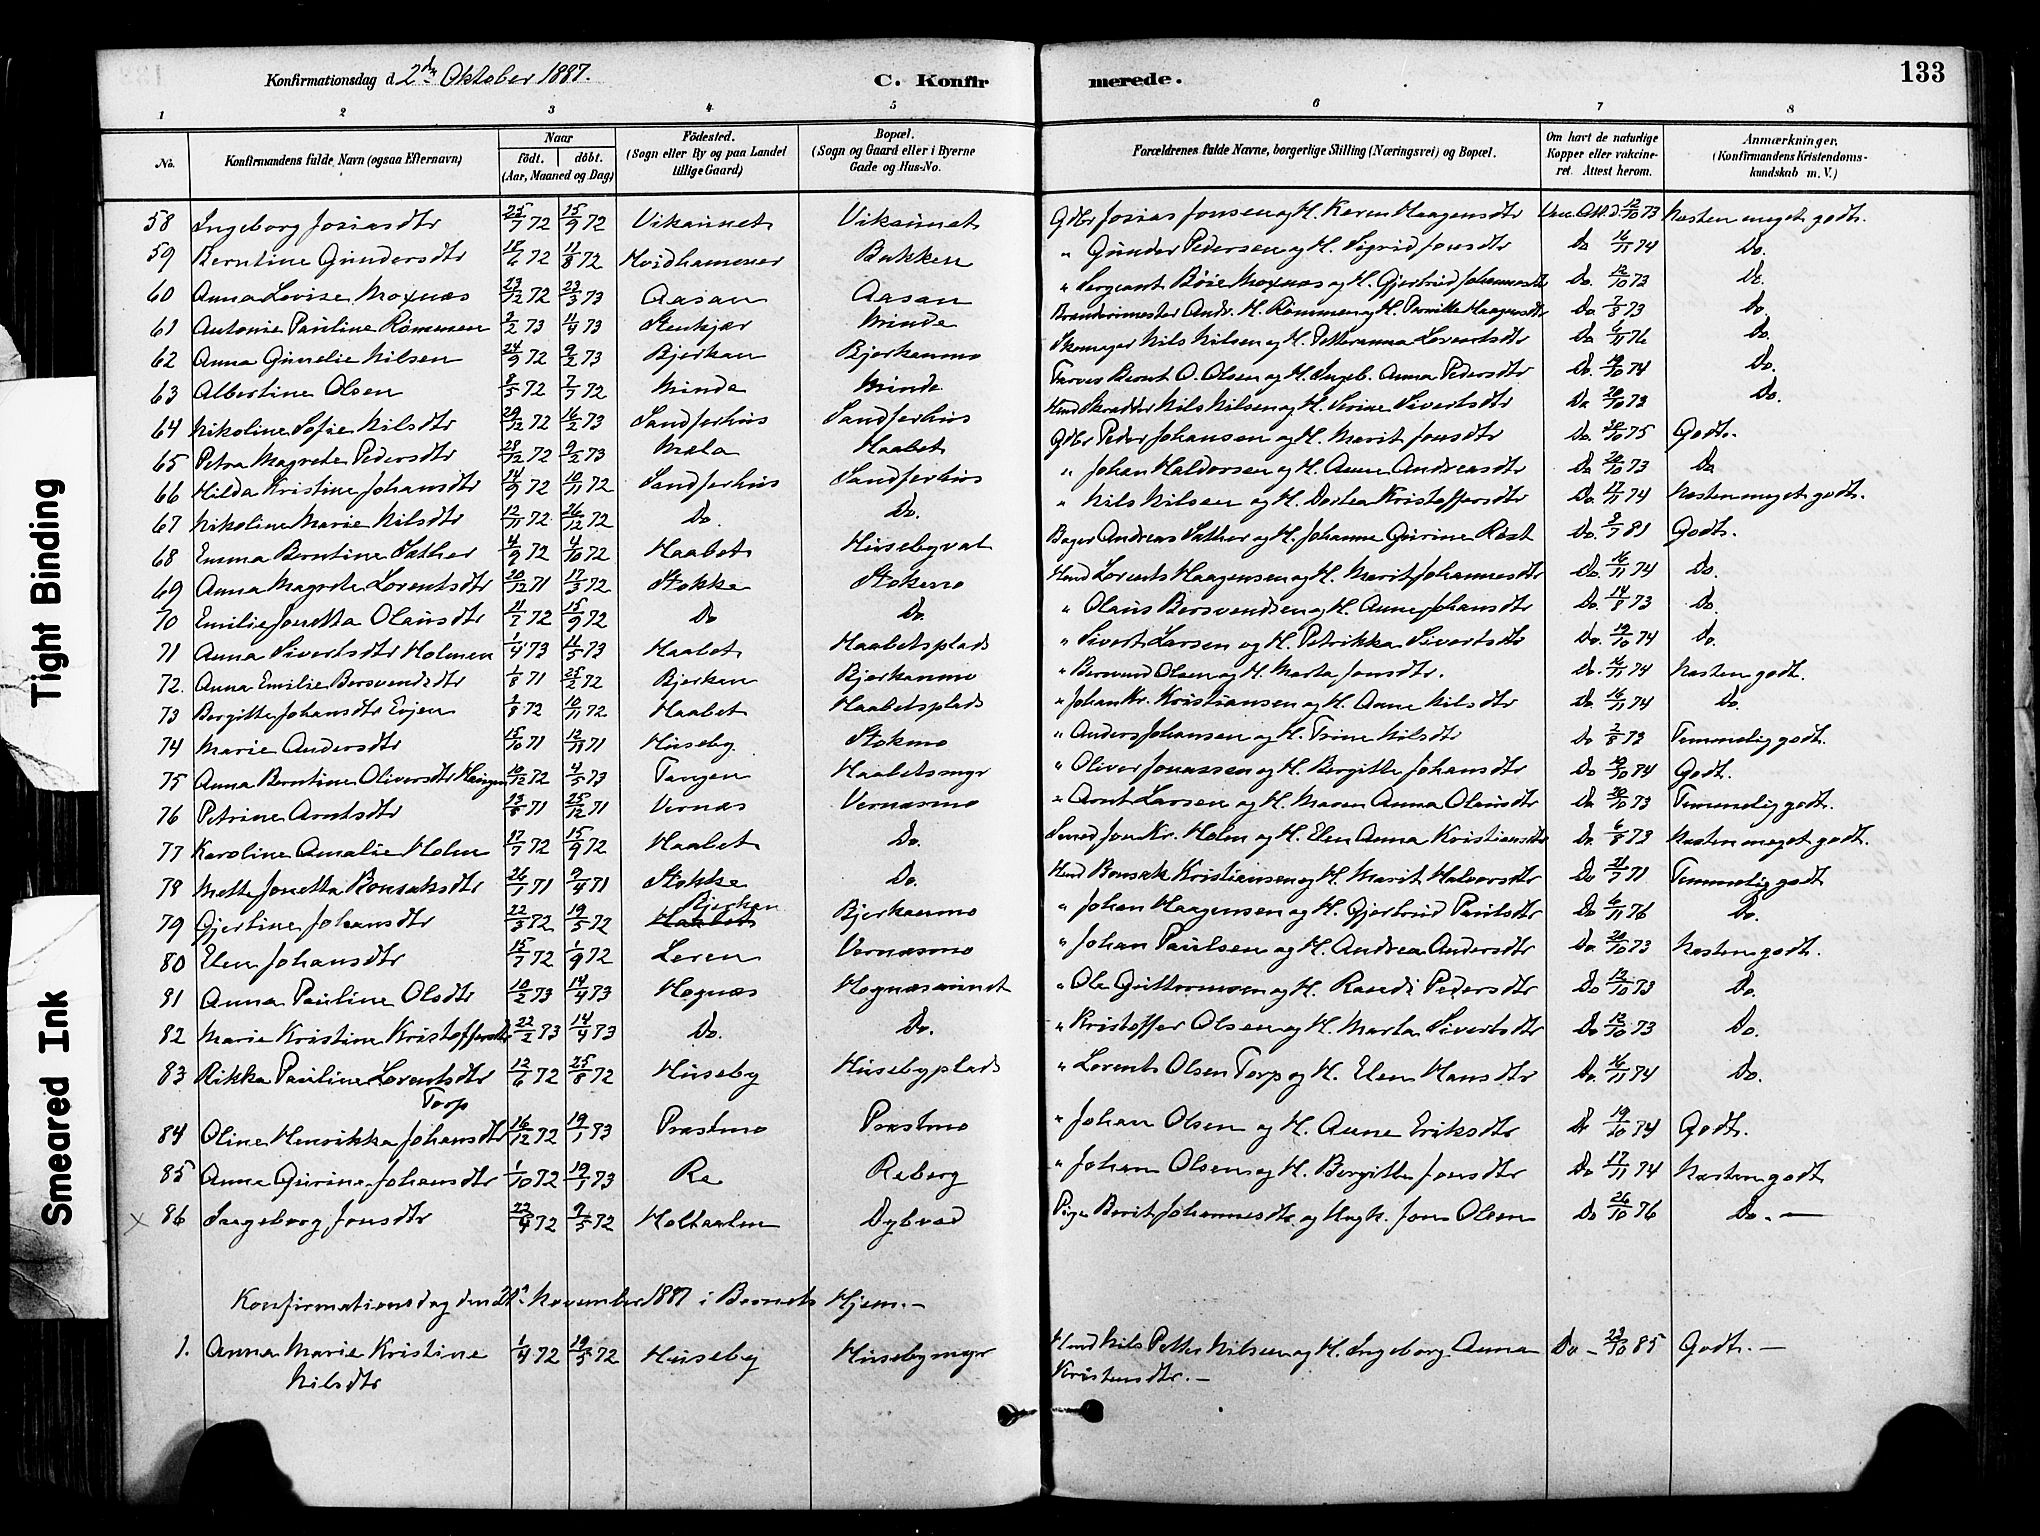 Tight Binding
Smeared Ink
Konfirmationsdag d. 2den Oktober 1887.
C. Konfir
merede.
133
1 2 3 4 5 6 7 8
No. Konfirmandens fulde Navn (ogsaa Efternavn) Naar födt. döbt. (Aar, Maaned og Dag) Födested. (Sogn eller By og paa Landet tillige Gaard) Bopæl. (Sogn og Gaard eller i Byerne Gade og Hus-No. Forældrenes fulde Navne, borgerlige Stilling (Næringsvei) og Bopæl. Om havt de naturlige Kopper eller vakcineret. Attest herom. Anmærkninger. (Konfirmandens Kristendomskundskab m. V.)
58 Ingeborg Josiasdtr 25/7 72 15/9 72 Vikaunet Vikaunet Gdbr Josias Jonsen og H. Karen Haagensdtr Vac. Att. d. 12/10 73 Næsten meget godt.
59 Berntine Gundersdtr 18/6 72 11/8 72 Hvidhammer Bakken " Gunder Pedersen og H. Sigrid Jonsdtr Do 16/11 74 Do.
60 Anna Lovise Moxnæs 23/12 72 23/3 73 Aasan Aasan " Sergeant Böie Moxnæs og H. Gjertrud Johannesdtr Do. 12/10 73 Do.
61 Antonie Pauline Rømmen 2/2 73 11/4 73 Stenkjær Minde Brandermester Andr. H. Rømmen og H. Pernille Haagensdtr Do. 7/8 73 Do.
62 Anna Gunelie Nilsen 24/9 72 9/2 73 Bjerkan Bjerkanmo Skomager Nils Nilsen og H. Petteranna Lorentsdtr Do 6/11 76 Do.
63 Albertine Olsen 9/5 72 7/7 72 Minde Minde Farver Bernt O. Olsen og H. Ingeb. Anna Pedersdtr Do. 19/10 74 Do.
64 Nikoline Sofie Nilsdtr 29/12 72 16/2 73 Sandferhus Sandferhus Hmd Skrædder Nils Nilsen og H. Serine Sivertsdtr Do 20/10 73 Do.
65 Petra Magrete Pedersdtr 28/12 72 9/2 73 Mæla Haabet Gdbr Peder Johansen og H. Marit Jonsdtr Do. 28/10 75 Godt.
66 Hilda Kristine Johansdtr 14/9 72 10/11 72 Sandferhus Sandferhus " Johan Haldorsen og H. Anne Andreasdtr Do 20/10 73 Do
67 Nikoline Marie Nilsdtr 12/11 72 26/12 72 Do. Do. " Nils Nilsen og H. Dortea Kristoffersdtr Do. 17/11 74 Næsten meget godt.
68 Emma Berntine Sæther 4/9 72 4/10 72 Haabet Husebyval Bager Andreas Sæther og H. Johanne Gurine Røst Do. 9/7 81 Godt.
69 Anna Magrete Lorentsdtr 20/12 71 17/3 72 Stokke Stokmo Hmd Lorents Haagensen og H. Marit Johannesdtr Do. 16/11 74 Do.
70 Emilie Jonetta Olausdtr 11/7 72 15/9 72 Do Do. " Olaus Bersvendsen og H. Anne Johansdtr Do. 14/8 73 Do.
71 Anna Sivertsdtr Holmen 1/4 73 11/5 73 Haabet Haabetsplads " Sivert Larsen og H. Petrikka Sivertsdtr Do. 19/10 74 Do.
72. Anna Emilie Bersvendsdtr 1/8 71 25/2 72 Bjerkan Bjerkanmo " Bersvend Olsen og H. Marta Jonsdtr. Do. 16/11 74 Næsten godt.
73 Bergitte Johansdtr Evjen 1/8 72 10/11 72 Haabet Haabetsplads " Johan Kr. Kristiansen og H. Anne Nilsdtr Do 16/11 74 Do.
74 Marie Andersdtr 15/10 71 12/11 71 Huseby Stokmo " Anders Johansen og H. Trine Nilsdtr Do 7/8 73 Temmelig godt.
75 Anna Berntine Oliversdtr Haugen 10/12 72 4/5 73 Tangen Haabetsmyr " Oliver Jonassen og H. Bergitte Johansdtr Do 19/10 74 Godt.
76 Petrine Arntsdtr 13/8 71 25/12 71 Vernæs Vernæsmo " Arnt Larsen og H. Maren Anna Olausdtr Do 20/10 73 Temmelig godt.
77 Karoline Amalie Holm 17/7 72 15/9 72 Haabet Do. Smed Jon Kr. Holm og H. Elen Anna Kristiansdtr Do 6/8 73 Næsten meget godt.
78 Mette Jonetta Bonsaksdtr 26/1 71 9/4 71 Stokke Do. Hmd Bonsak Kristiansen og H. Marit Halvorsdtr Do 21/7 71 Temmelig godt
79 Gjertine Johansdtr 22/3 72 19/5 72 Haabet Bjerkan Bjerkanmo " Johan Haagensen og H. Gjertrud Paulsdtr Do 6/11 76 Do.
80 Elen Johansdtr 15/7 72 1/9 72 Leren Vernæsmo " Johan Paulsen og H. Andrea Andersdtr Do. 20/10 73 Næsten godt.
81 Anna Pauline Olsdtr 10/2 73 14/4 73 Hognæs Hognæsaunet " Ole Guttormsen og H. Randi Pedersdtr Do 12/10 73 Do.
82 Marie Kristine Kristoffersdtr 22/2 73 14/4 73 Do. Do. " Kristoffer Olsen og H. Marta Sivertsdtr Do 12/10 73 Do.
83 Rikka Pauline Lorentsdtr Torp 12/6 72 25/8 72 Huseby Husebyplads " Lorents Olsen Torp og H. Elen Hansdtr Do. 16/11 74 Do.
84 Oline Henrikka Johansdtr 16/12 72 19/1 73 Præstmo Præstmo " Johan Olsen og H. Anne Eriksdtr Do 19/10 74 Godt.
85 Anne Gurine Johansdtr 1/10 72 19/1 73 Re Reberg " Johan Olsen og H. Bergitte Jonsdtr Do 17/11 74 Næsten godt
x 86 Ingeborg Jonsdtr 22/4 72 9/5 72 Holtaalen Dybvad Pige Berit Johannesdtr og Ungk. Jons Olsen Do 26/10 76 Do. —
Konfirmationsdag den 21de November 1887 i Barnets Hjem. —
1. Anna Marie Kristine 1/4 72 19/5 72 Huseby Husebymyr Hmd Nils Petter Nilsen og H. Ingeborg Anna Do – 23/10 85 Godt. —
Nilsdtr Kristensdtr. —